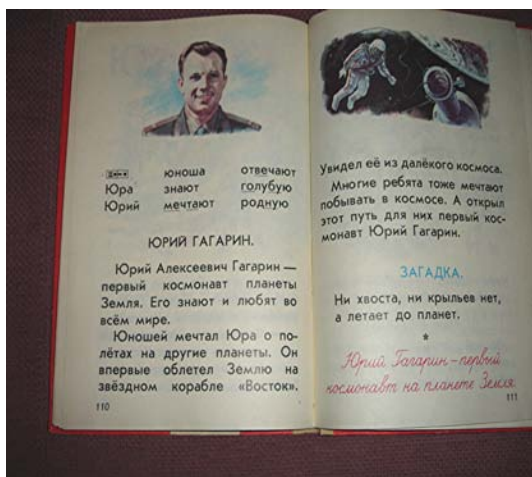 юноша отвечают
Юра знают голубую
Юрий мечтают родную
ЮРИЙ ГАГАРИН.
Юрий Алексеевич Гагарин —
первый космонавт планеты
Земля. Его знают и любят во
всём мире.
Юношей мечтал Юра о по-
лётах на другие планеты. Он
впервые облетел Землю на
звёздном корабле «Восток».
110
Увидел её из далёкого космоса.
Многие ребята тоже мечтают
побывать в космосе. А открыл
этот путь для них первый кос-
монавт Юрий Гагарин.
ЗАГАДКА.
Ни хвоста, ни крыльев нет,
а летает до планет.
*
Юрий Гагарин – первый
космонавт на планете Земля
111